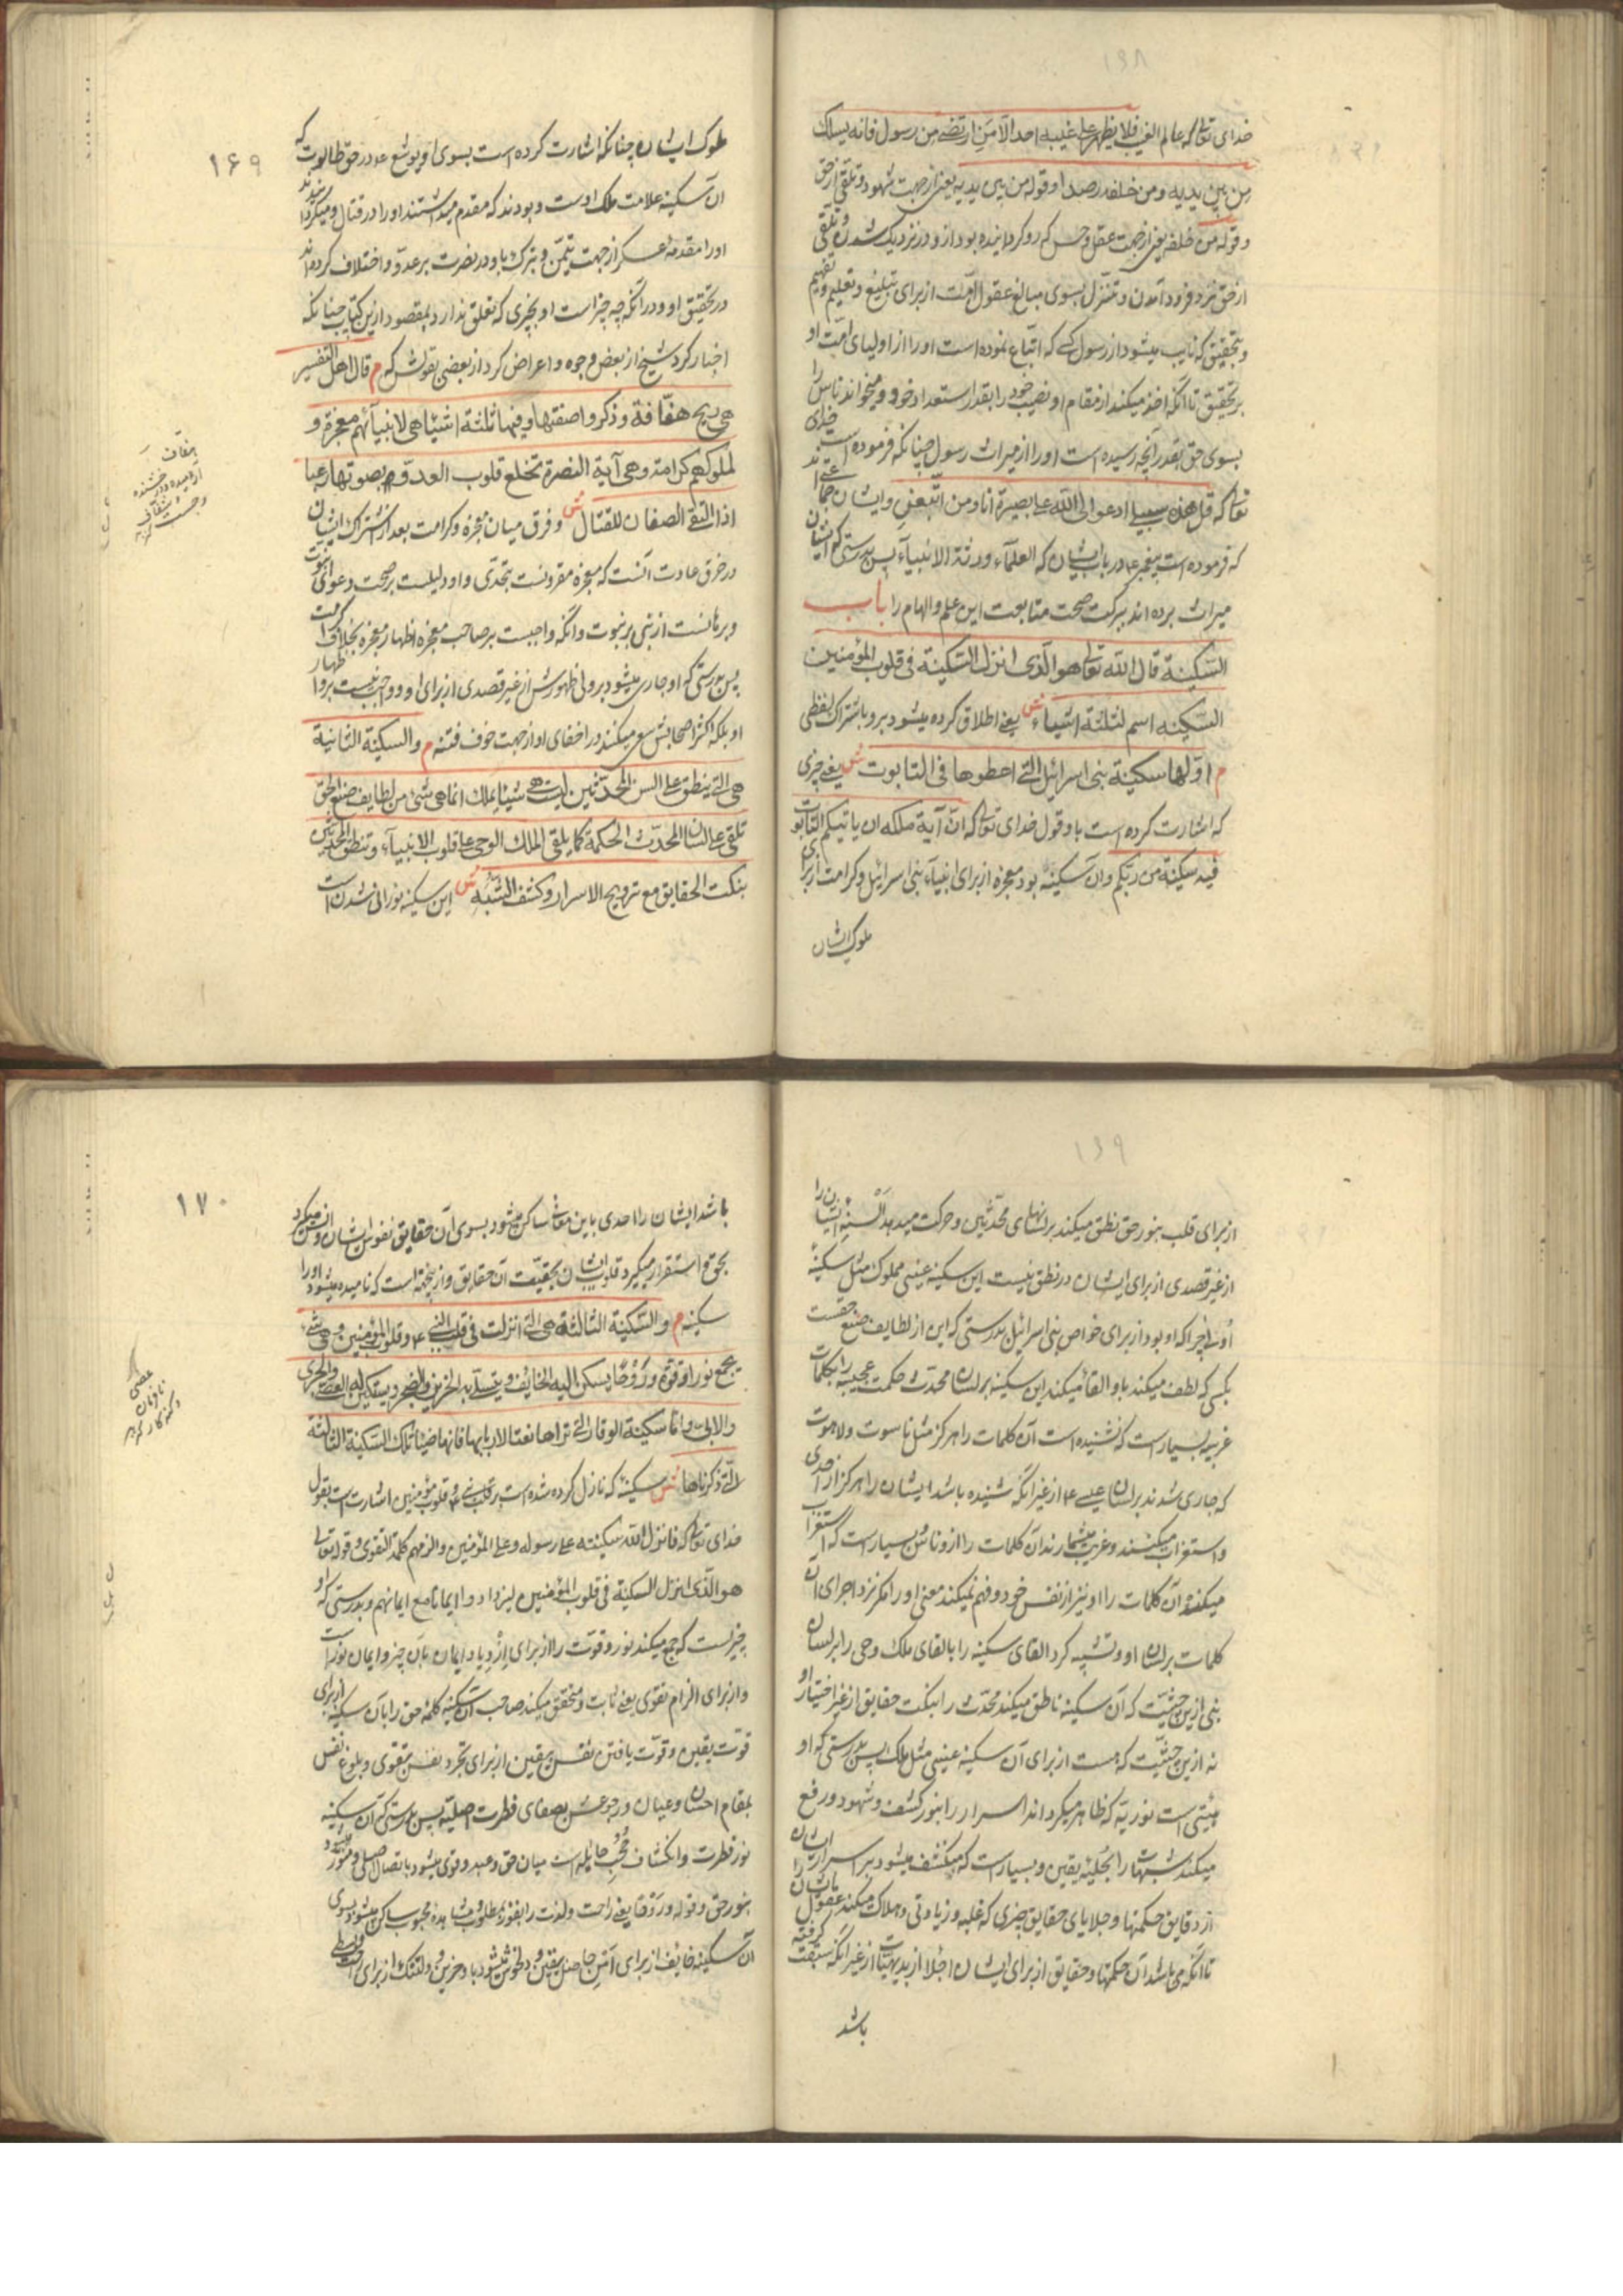 ۱۶۸
خدای تعالی که عالم الغیب فلا یظهر علی غیبه احدا الّا من ارتضی من رسول فانه یسلک
من بین یدیه و من خلفه رصدا و قوله من بین یدیه یعنی از جهت شهود و تلقی از حق
و قوله من خلفه یعنی از جهت عقل و حس که رو گردانیده بود از و در نزدیک شدن و تلقی
از حق نزد فرود آمدن و تنزل بسوی مبالغ عقول امّت از برای تبلیغ و تعلیم و تفهیم
و بتحقیق که نایب میشود از رسول کسی که اتّباع نموده است او را از اولیای امّت او
بر تحقیق تا آنکه اخذ میکند از مقام او نصیب خود را بقدر استعداد خود و میخواند ناس را
بسوی حق بقدر آنچه رسیده است او را از میراث رسول چنانکه فرموده است خدای
تعالی که قل هذه سبیلی ادعو الی الله علی بصیرة انا و من اتّبعنی و ایشان جماعتی اند
که فرموده است پیغمبر ع در باب ایشان که العلمآء ورثة الانبیآء پس بدرستی که ایشان
میراث برده اند ببرکت صحت متابعت این علم و الهام را باب
السّکینة قال الله تعالی هو الّذی انزل السّکینة فی قلوب المؤمنین
السّکینه اسم لثلثة اشیاء ش یعنی اطلاق کرده میشود برو باشتراک لفظی
م اوّلها سکینة بنی اسرائیل الّتی اعطوها فی التابوت ش یعنی چیزی
که اشارت کرده است باو قول خدای تعالی که انّ آیة ملکه ان یاتیکم التّابوت
فیه سکینة من ربّکم و آن سکینه بود معجزه از برای انبیآء بنی اسرائیل و کرامت از برای
ملوک ایشان
۱۶۹
ملوک ایشان چنانکه اشارت کرده است بسوی او یوشع ع در حق طالوت که
آن سکینه علامت ملک اوست و بودند که مقدم میداشتند او را در قتال و میگردانیدند
او را مقدمهٔ عسکر از جهت تیمّن و تبرک باو در نصرت بر عدوّ و اختلاف کرده اند
در تحقیق او و در آنکه چه چیز است او بچیزی که تعلق ندارد بمقصود ازین کتاب چنانکه
اخبار کرد شیخ از بعض وجوه و اعراض کرد از بعضی بقولش که م قال اهل التفسیر
هی ریح هفّافة و ذکروا صفتها و فیها ثلثة اشیا هی لانبیآئهم معجزة و
لملوکهم کرامة و هی آیة النصرة تخلع قلوب العدوّ بصوتها رعبا
اذا التقی الصفان للقتال ش و فرق میان معجزه و کرامت بعد از اشتراک ایشان
در خرق عادت آنست که معجزه مقرونست بتحدّی و او دلیلست بر صحت دعوای نبوت
و برهانست از نبی بر نبوت و آنکه واجبست بر صاحب معجزه اظهار معجزه بخلاف کرامت
پس بدرستی که او جاری میشود بر ولی ظهورش از غیر قصدی از برای او و واجب نیست برو اظهار
او بلکه اکثر اصحابش سعی میکنند در اخفای او از جهت خوف فتنه م و السکینة الثانیة
هی الّتی ینطق علی السن المحدّثین لیست هی شیئا یملک انّما هی شئ من لطایف صنع الحق
تلقی علی لسان المحدّث الحکمة کما یلقی الملک الوحی علی قلوب الانبیآء و تنطق المحدّثین
بنکت الحقایق مع ترویح الاسرار و کشف الشبه ش این سکینه نورانی شدن است
۱۶۹
از برای قلب بنور حق نطق میکند بر لسانهای محدّثین و حرکت میدهد السنهٔ ایشان را
از غیر قصدی از برای ایشان در نطق نیست این سکینه عینی مملوک مثل سکینهٔ
اولی چرا که او بود از برای خواص بنی اسرائیل بدرستی که این از لطایف صنع حقست
بکسی که لطف میکند باو القا میکند این سکینه بر لسان محدّث حکمت عجیبه را بکلمات
غریبه بسیار است که نشنیده است آن کلمات را هرگز مثل ناسوت و لاهوت
که جاری شدند بر لسان عیسی ع از غیر آنکه شنیده باشد ایشان را هرگز از احدی
و استغراب میکنند و غریب میشمارند آن کلمات را از و ناس و بسیار است که استغراب
میکند آن کلمات را او نیز از نفس خود و فهم نمیکند معنی او را مگر نزد اجرای آن
کلمات بر لسان او و تشبیه کرد القای سکینه را بالقای ملک وحی را بر لسان
نبی ازین حیثیّت که آن سکینه ناطق میکند محدّث را بنکت حقایق از غیر اختیار او
نه ازین حیثیّت که هست از برای آن سکینه عینی مثل ملک پس بدرستی که او
هیئتی است نوریّه که ظاهر میگرداند اسرار را بنور کشف و شهود و رفع
میکند شبهات را بجلیّهٔ یقین و بسیار است که منکشف میشود بر اسرار ایشان
از دقایق حکمتها و جلایای حقایق چیزی که غلبه و زیادتی و هلاک میکند عقول ایشان را
تا آنکه می باشد آن حکمتها و حقایق از برای ایشان اجلا از بدیهیّات از غیر آنکه سبقت گرفته
باشد
۱۷۰
باشد ایشان را احدی باین معانی ساکن میشود بسوی آن حقایق نفوس ایشان و انس میگیرد
بحق و استقرار میگیرد قلوب ایشان بحقیّت آن حقایق و ازینجهة است که نامیده میشود او را
سکینه م و السّکینة الثالثة هی الّتی انزلت فی قلب النبی ع و قلوب المؤمنین و هی شئ
یجمع نورا و قوّة و رَوْحًا یسکن الیه الخائف و یتسلّی به الحزین و الضجر و یستکین له العصیّ و الجری
والابی و امّا سکینة الوقار الّتی تراها نعتا لاربابها فانّها ضیاء تلک السّکینة الثالثة
الّتی ذکرناها ش سکینهٔ که نازل کرده شده است بر قلب نبی ع و قلوب مؤمنین اشارت است بقول
خدای تعالی که فانزل الله سکینته علی رسوله و علی المؤمنین و الزمهم کلمة التقوی و قوله تعالی
هو الّذی انزل السکینة فی قلوب المؤمنین لیزدادوا ایمانا مع ایمانهم و بدرستی که او
چیزیست که جمع میکند نور و قوّت را از برای ازدیاد ایمان بآن چیز و ایمان نور است
و از برای الزام تقوی یعنی ثابت و متحقق میکند صاحب آن سکینه کلمهٔ حق را بآن سکینه از برای
قوّت یقین و قوّت یافتن نفس بیقین از برای تجرد نفس بتقوی و بلوغ نفس
بمقام احسان و عیان و رجوعش بصفای فطرت اصلیّه پس بدرستی که آن سکینه
نور فطرت و انکشاف حُجُب حایله است میان حق و عبد و قوی میشود باتصال اصلی و منوّر میشود
بنور حق و قوله و رَوْحا یعنی راحت و لذت را بفوز بمطلوب و مشاهدهٔ محبوب ساکن میشود بسوی
آن سکینه خایف از برای امن حاصل بیقین و دلخوش میشود باو حزین و دلتنک از برای
هفاف
آرامیده و درخشنده
عصی
نافرمان
و گنه کار